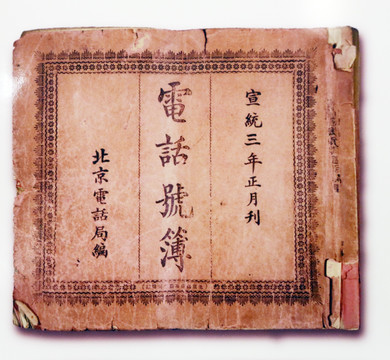 宣統三年正月刊
電話號簿
北京電話局編